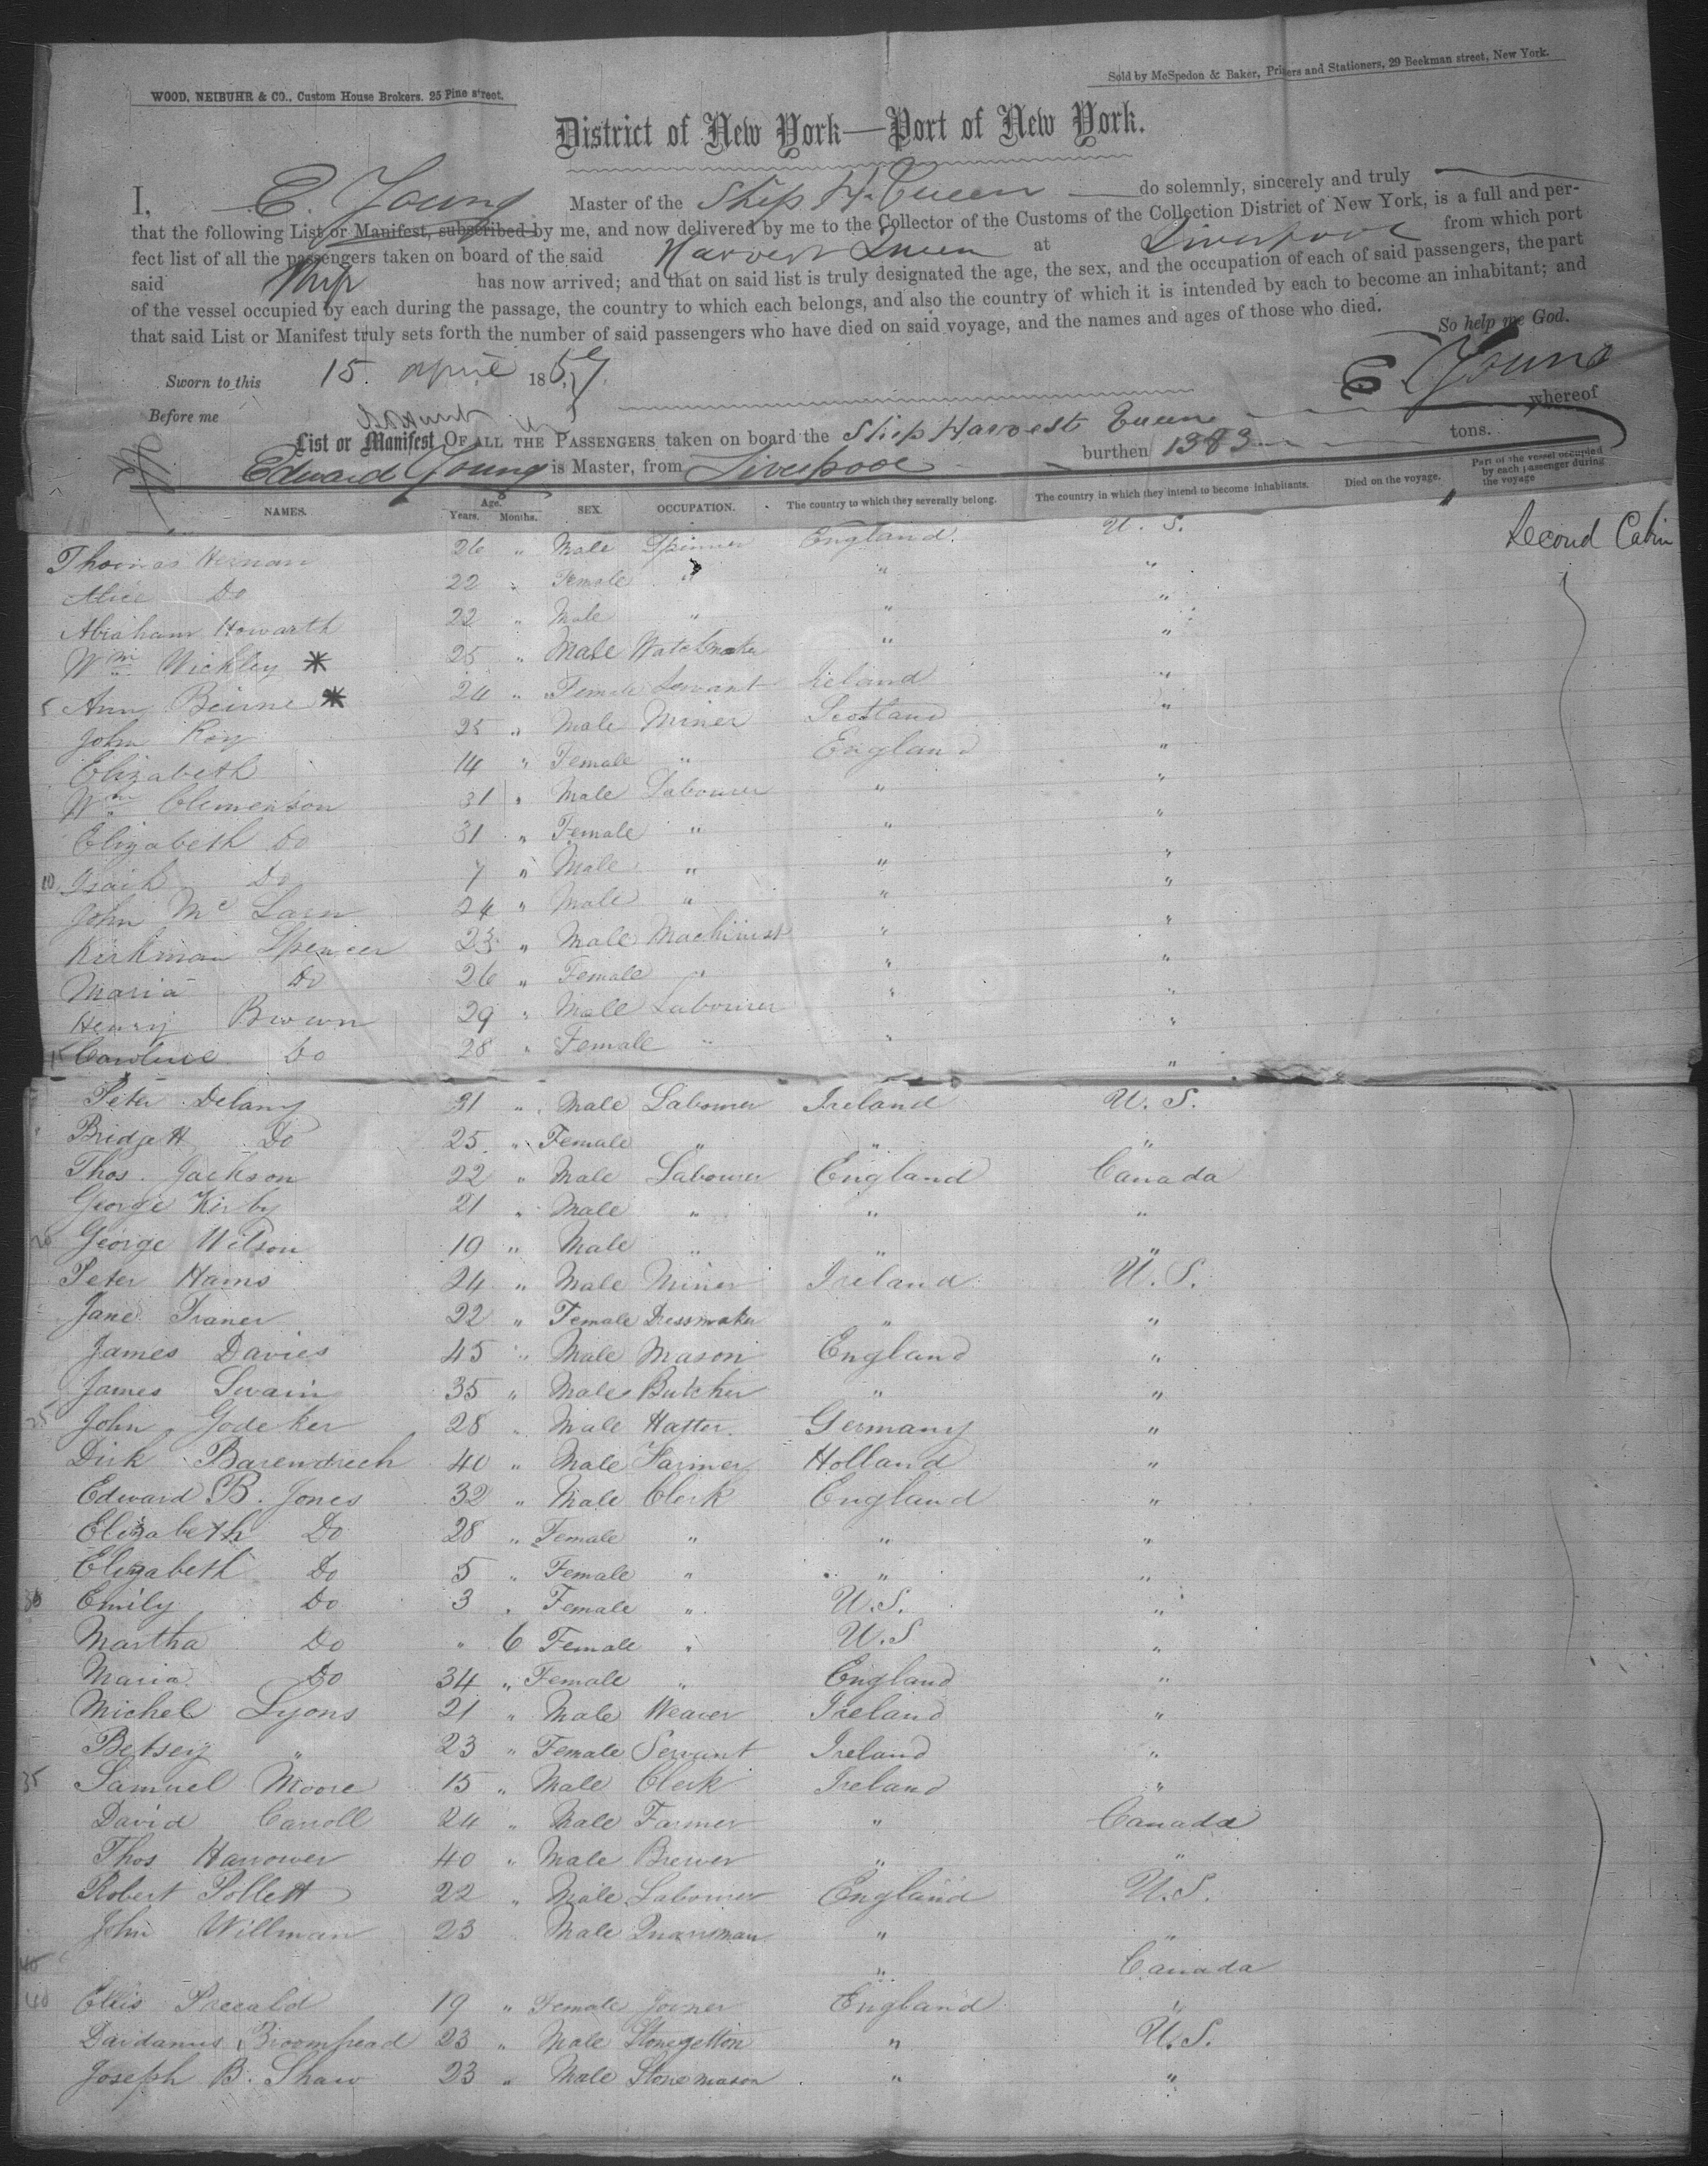 WOOD, NEIBUHR & CO., Custom House Brokers. 25 Pine street.
Sold by McSpedon & Baker, Priters and Stationers, 29 Beekman street, New York.
District of New York—Port of New York.
I, E. Young Master of the Ship H. Queen do solemnly, sincerely and truly
that the following List or Manifest, subscribed by me, and now delivered by me to the Collector of the Customs of the Collection District of New York, is a full and per-
fect list of all the passengers taken on board of the said Harvest Queen at Liverpool from which port
said Ship has now arrived; and that on said list is truly designated the age, the sex, and the occupation of each of said passengers, the part
of the vessel occupied by each during the passage, the country to which each belongs, and also the country of which it is intended by each to become an inhabitant; and
that said List or Manifest truly sets forth the number of said passengers who have died on said voyage, and the names and ages of those who died.
So help me God.
Sworn to this 15. April 1857. E Young
Before me
List or Manifest OF ALL THE PASSENGERS taken on board the Ship Harvest Queen whereof
Edward Young is Master, from Liverpool burthen 1383 tons.
NAMES. Age. Years. Months. SEX. OCCUPATION. The country to which they severally belong. The country in which they intend to become inhabitants. Died on the voyage. Part of the vessel occupied by each passenger during the voyage
Thomas 26 " Male Spinner England. U. S. Second Cabin
Alice Do 22 " Female " " "
Abraham Howarth 22 " Male " " "
Wm Wickley * 25 " Male Watchmaker " "
5 Ann Beirne * 24 " Female Servant Ireland "
John Roy 25 " Male Miner Scotland "
Elizabeth 14 " Female " England "
Wm Clementson 31 " Male Labourer " "
Elizabeth Do 31 " Female " " "
10 Isaih Do 7 " Male " " "
John Mc Larn 24 " Male " " "
Kirkman Spencer 23 " Male Machinist " "
Maria Do 26 " Female " " "
Henry Brown 29 " Male Labourer " "
15 Caroline Do 28 " Female " " "
Peter Delany 31 " Male Labourer Ireland U. S.
Bridgett Do 25 " Female " " "
Thos. Jackson 22 " Male Labourer England Canada
George Kirby 21 " Male " " "
20 George Wilson 19 " Male " " "
Peter Hains 24 " Male Miner Ireland U. S.
Jane Traner 22 " Female Dressmaker " "
James Davies 45 " Male Mason England "
James Swain 35 " Male Butcher " "
25 John Godeker 28 " Male Hatter Germany "
Dirk Barendrech 40 " Male Farmer Holland "
Edward B. Jones 32 " Male Clerk England "
Elizabeth Do 28 " Female " " "
Elizabeth Do 5 " Female " " "
30 Emily Do 3 " Female " U.S. "
Martha Do " 6 Female " U.S "
Maria Do 34 " Female " England "
Michel Lyons 21 " Male Weaver Ireland "
Betsey " 23 " Female Servant Ireland "
35 Samuel Moore 15 " Male Clerk Ireland "
David Carroll 24 " Male Farmer " Canada
Thos Harrower 40 " Male Brewer " "
Robert Pollett 22 " Male Labourer England U.S.
John Willman 23 Male " "
40 " Canada
40 Ellis 19 " Female Joiner England "
Dardanus Broomhead 23 " Male " U.S.
Joseph B. Shaw 23 " Male Stone mason " "